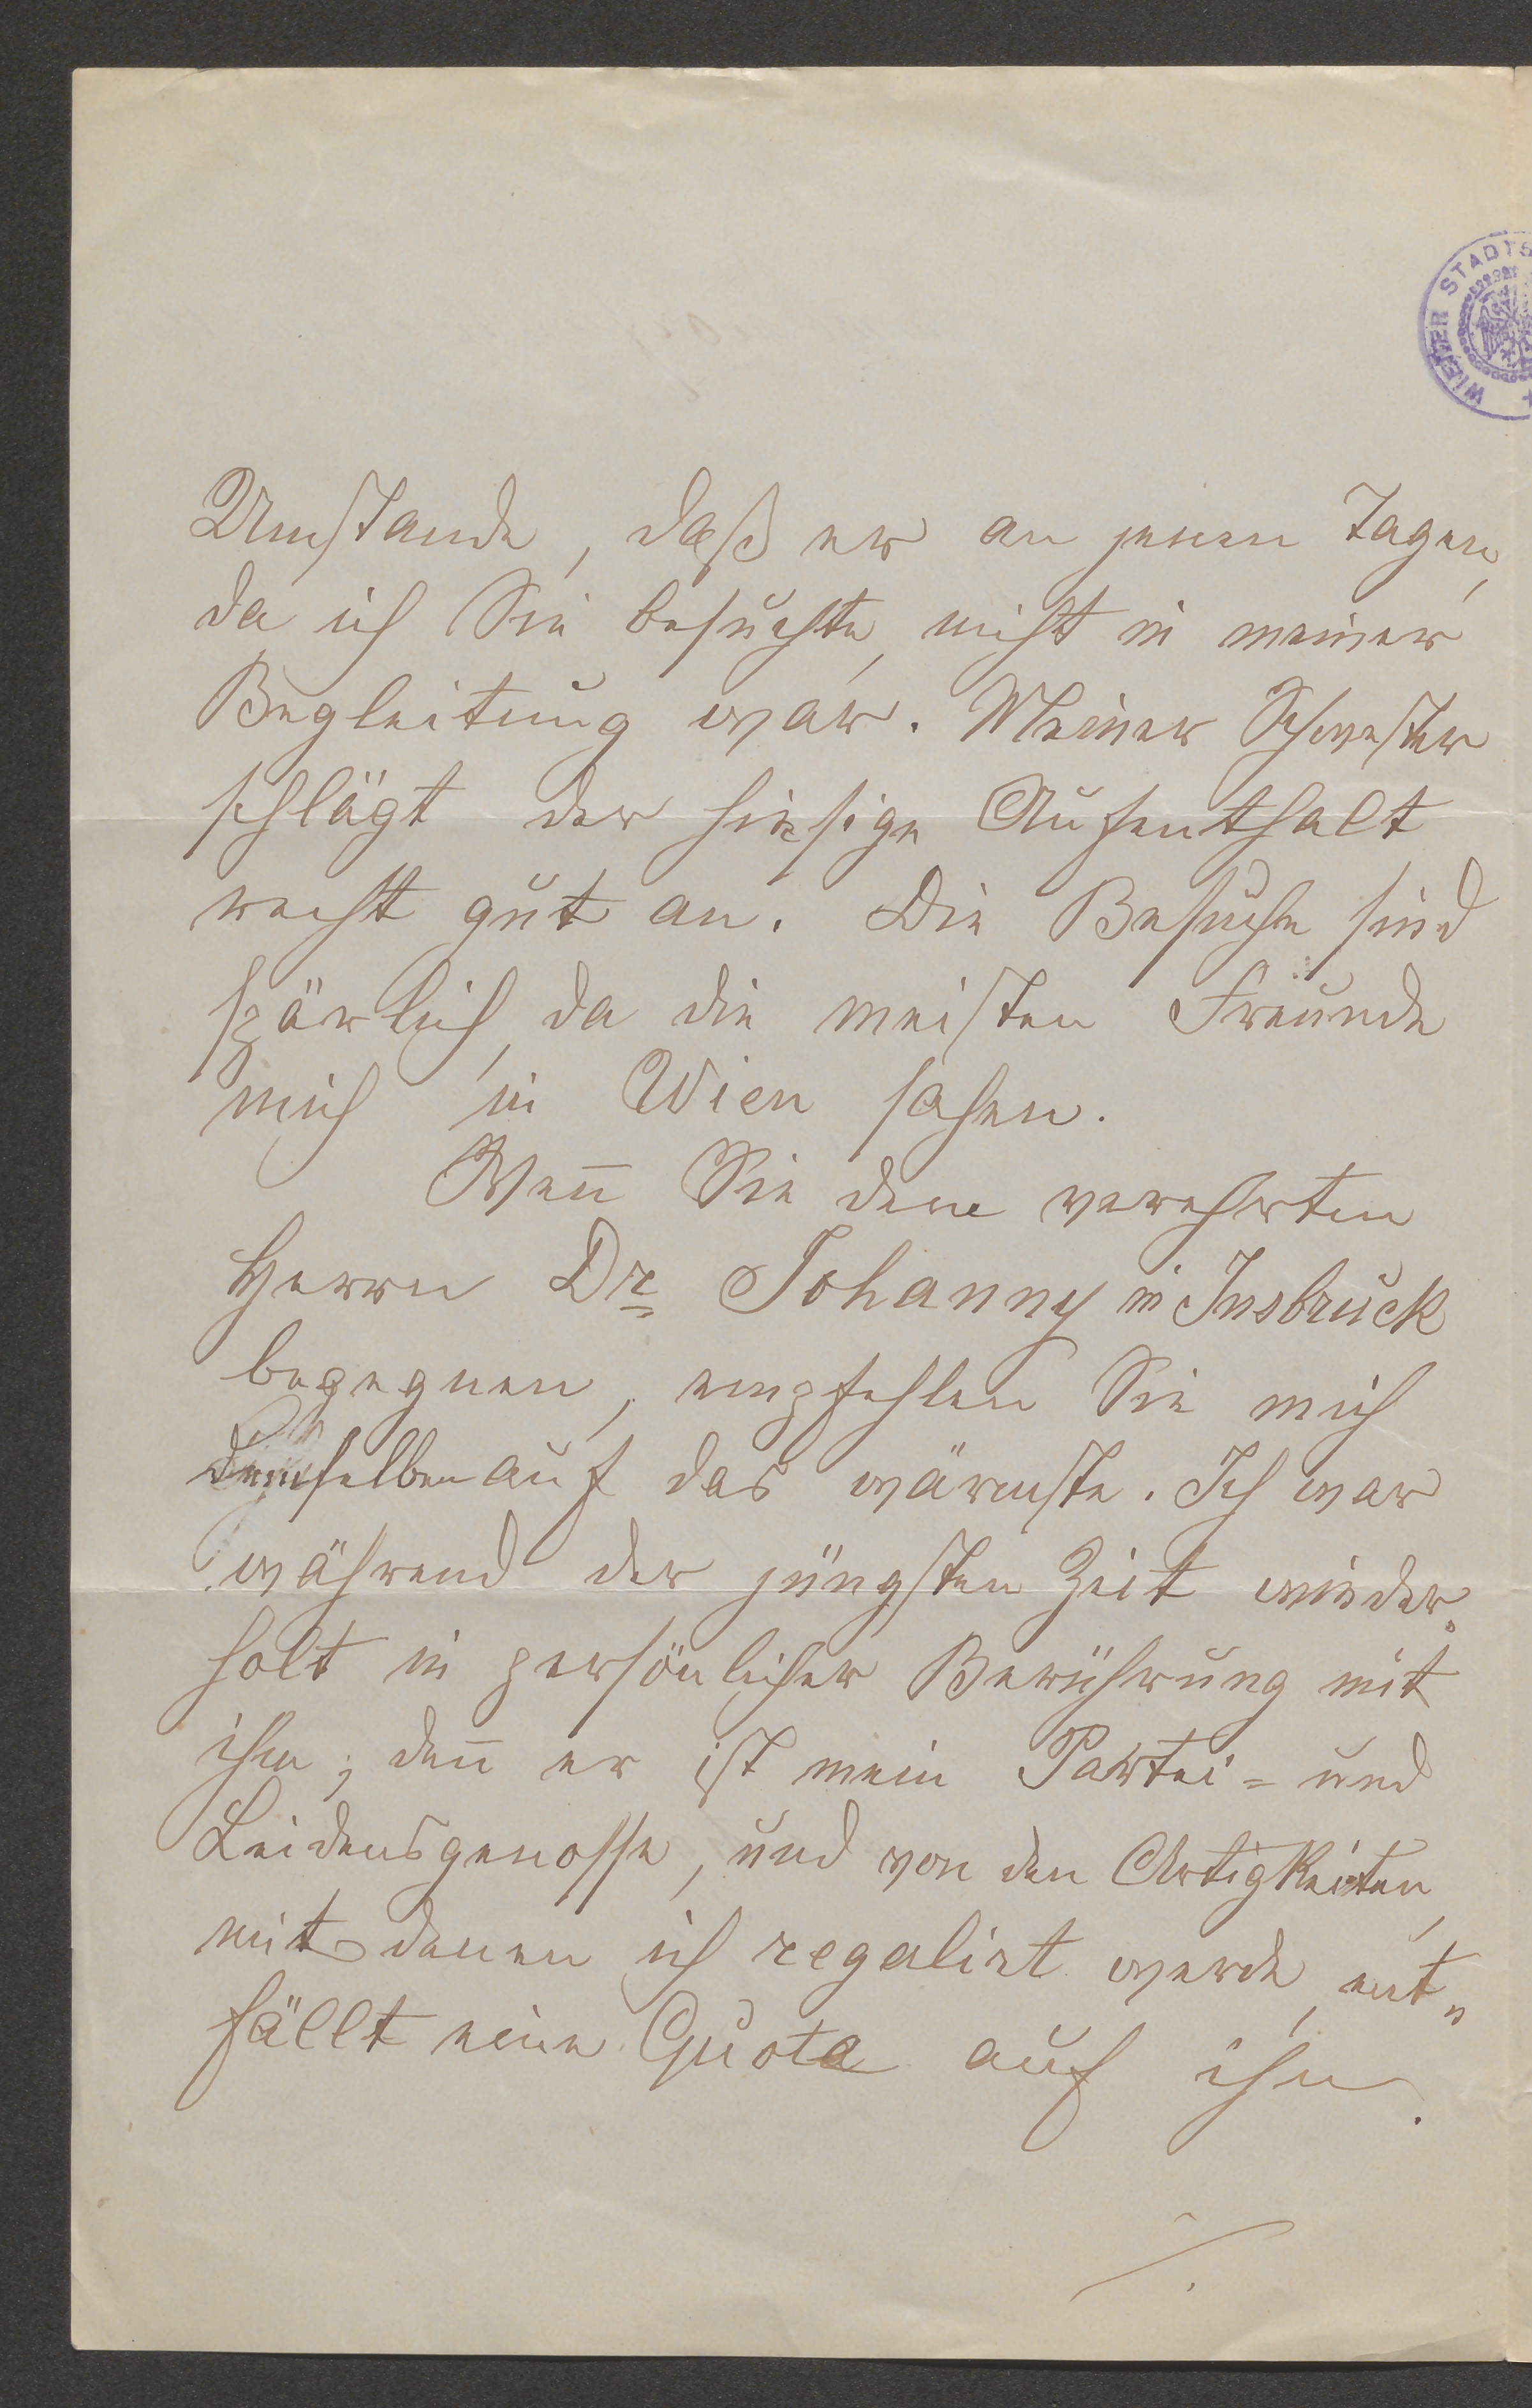 WIENER STADTS
Umstande, daß er an jenen Tagen,
da ich Sie besuchte, nicht in meiner
Begleitung war. Meiner Schwester
schlägt der hiesige Aufenthalt
recht gut an. Die Besuche sind
spärlich, da die meisten Freunde
mich in Wien sahen.
Wen̅ Sie dem verehrten
Herrn Dr Johanny in Insbruck
begegnen, empfehlen Sie mich
demselben auf das wärmste. Ich war
während der jüngsten Zeit wieder„
holt in persönlicher Berührung mit
ihm; den̅ er ist mein Partei= und
Leidensgenosse, und von den Artigkeiten,
mit denen ich regalirt werde, ent„
fällt eine Quota auf ihn.
./.